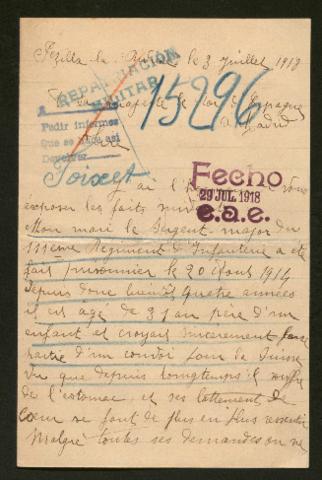 Pézilla la Rivière le 3 Juillet 1918
REPATRIACIÓN
MILITAR
15296
A sa Majesté le Roi d'Espagne
à Madrid
Pedir informes
Que se haga así
Devolver
Sire
Toixet
Fecho
29 JUL. 1918
e.a.e.
J'ai l'h vous
exposer les faits suiv
Mon mari le Sergent major du
111ème Régiment d'Infanterie a été
fait prisonnier le 20 Août 1914
depuis donc bientôt quatre années
il est agé de 3 an père d'un
enfant et croyait sincèrement faire
partie d'un convoi pour la Suisse
Vu que depuis longtemps il souffre
de l'estomac et ses battements de
cœur se font de plus en plus ressentir
Malgré toutes ses demandes on ne